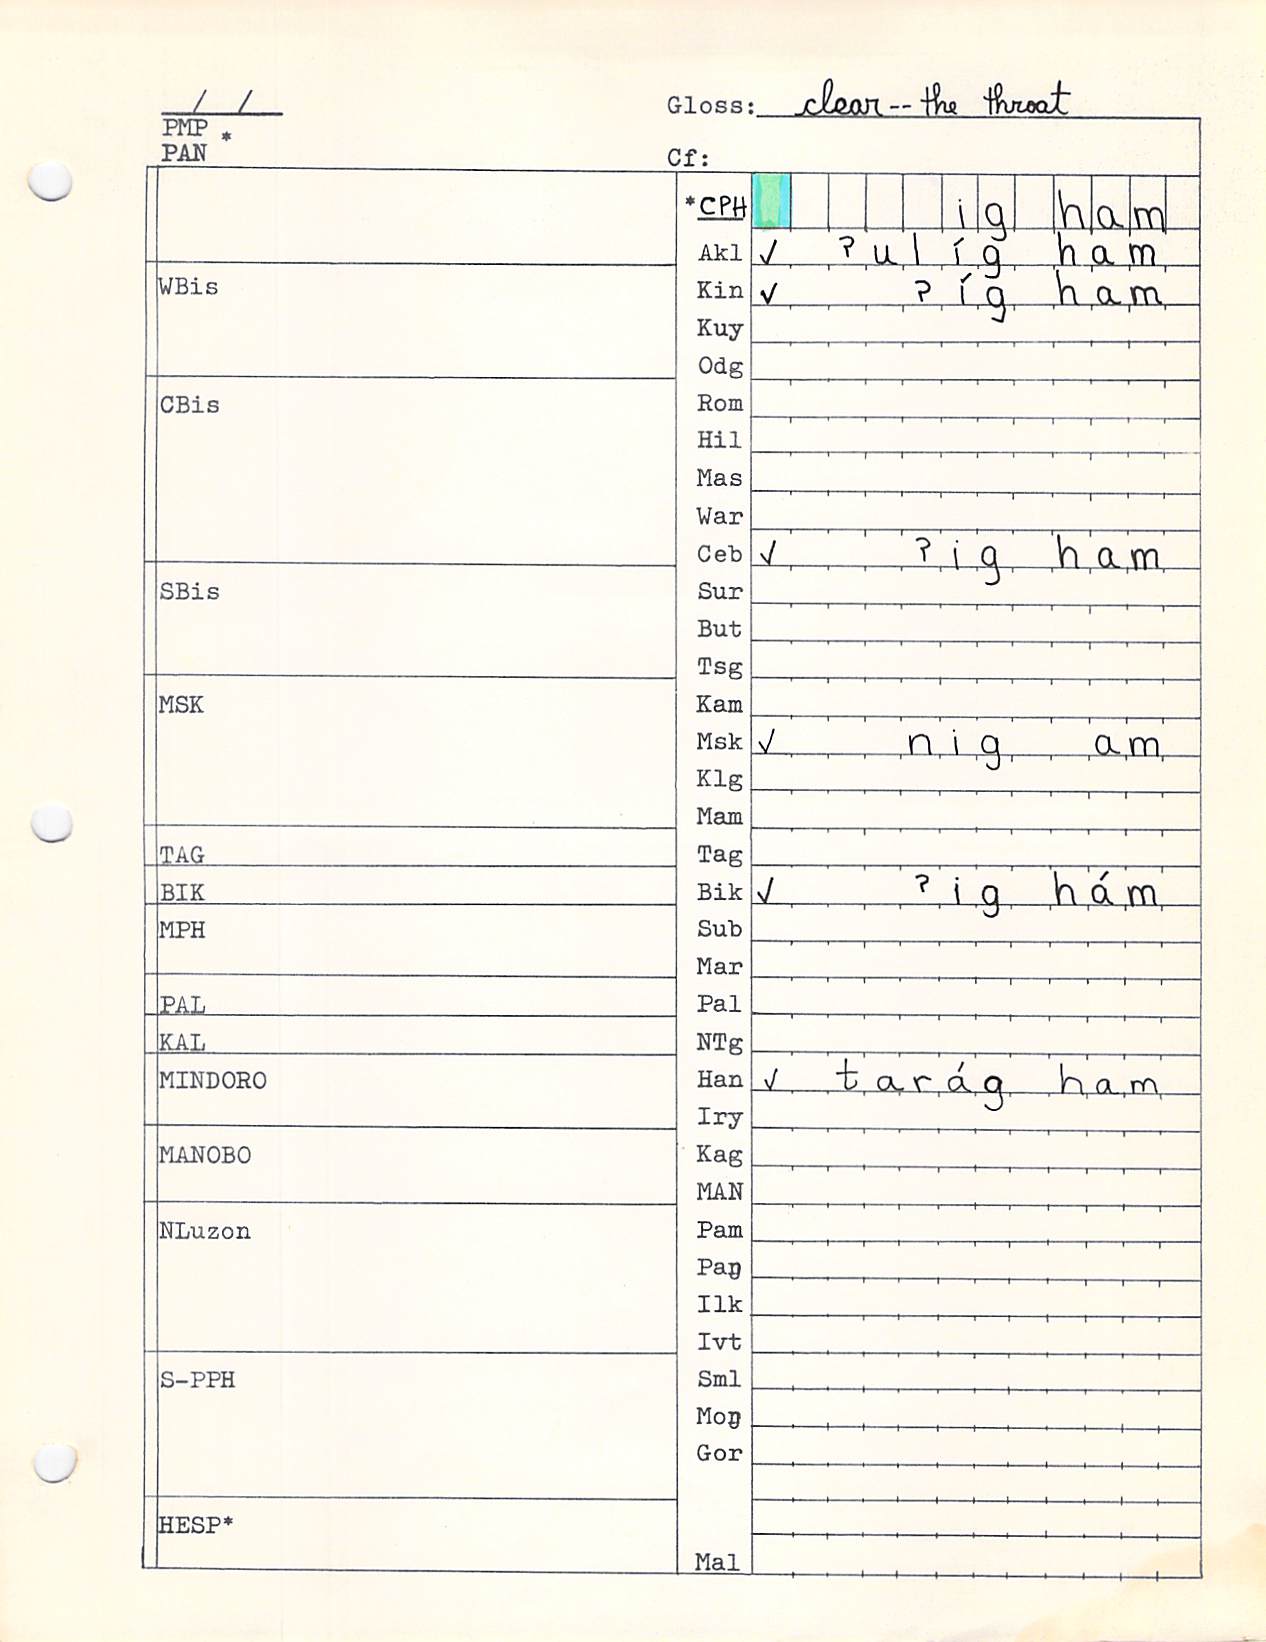 / /
Gloss: clear -- the throat
PMP *
PAN
Cf:
*CPH ig ham
Akl ✓ ʔulíg ham
WBis
Kin ✓ ʔíg ham
Kuy
Odg
CBis
Rom
Hil
Mas
War
Ceb ✓ ʔig ham
SBis
Sur
But
Tsg
MSK
Kam
Msk ✓ nig am
Klg
Mam
TAG
Tag
BIK
Bik ✓ ʔig hám
MPH
Sub
Mar
PAL
Pal
KAL
NTg
MINDORO
Han ✓ tarág ham
Iry
MANOBO
Kag
MAN
NLuzon
Pam
Paŋ
Ilk
Ivt
S-PPH
Sml
Moŋ
Gor
HESP*
Mal